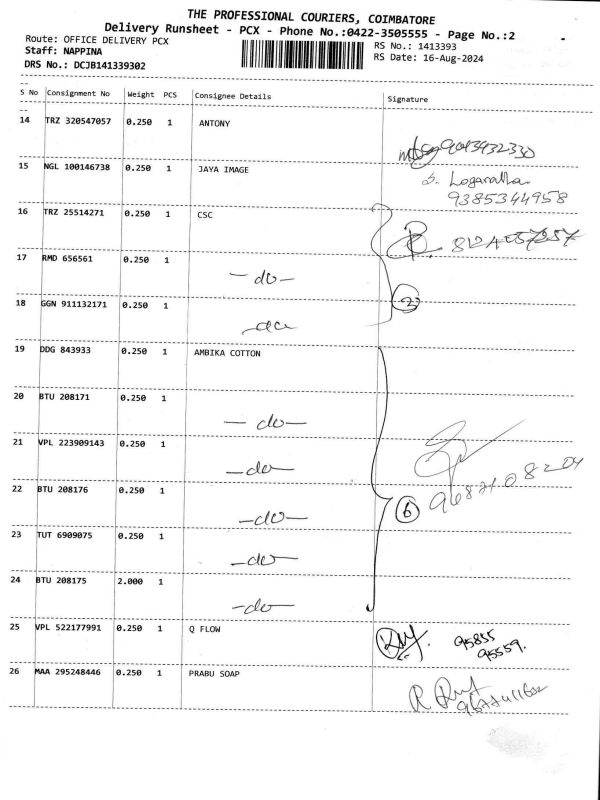 THE PROFESSIONAL COURIERS, COIMBATORE
Delivery Runsheet - PCX - Phone No.:0422-3505555 - Page No.:2
Route: OFFICE DELIVERY PCX
RS No.: 1413393
Staff: NAPPINA
RS Date: 16-Aug-2024
DRS No.: DCJB141339302
S No Consignment No Weight PCS Consignee Details Signature
14 TRZ 320547057 0.250 1 ANTONY
15 NGL 100146738 0.250 1 JAYA IMAGE
9385344958
16 TRZ 25514271 0.250 1 CSC
17 RMD 656561 0.250 1
- do -
18 GGN 911132171 0.250 1
2
- do
19 DDG 843933 0.250 1 AMBIKA COTTON
20 BTU 208171 0.250 1
- do -
21 VPL 223909143 0.250 1
- do -
22 BTU 208176 0.250 1
6
- do -
23 TUT 6909075 0.250 1
- do -
24 BTU 208175 2.000 1
- do -
25 VPL 522177991 0.250 1 Q FLOW
95855
95559.
26 MAA 295248446 0.250 1 PRABU SOAP